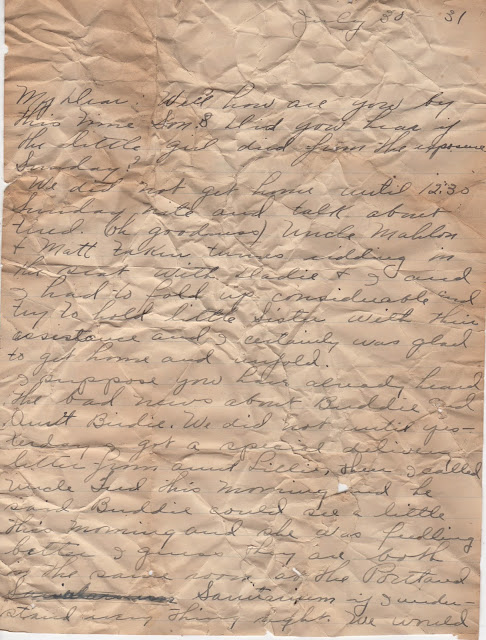 July 30 - 31
My Dear: Well how are you by
this time Son? Did you hear if
the little girl died from the exposure
Sunday?
We did not get home until 12:30
Sunday nite and talk about
tired. (Oh goodness) Uncle Mahlon
& Matt takin turns ridding in
the seat with Sladie & I and
I had to fold up considerable and
try to hold little sister with their
assistance and I certainly was glad
to get home and unfold.
I suppose you have already heard
the bad news about Buddie and
Aunt Birdie. We did not until yes-
terday got a special delivery
letter from aunt Lillie, then I called
Uncle this morning and he
said Buddie could see a little
this morning and she was feeling
better I guess they are both
in the same room at the Portland
Sanitarium if I under-
stand every thing right. We would